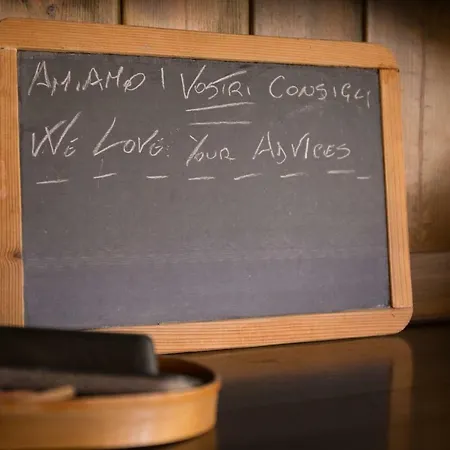 AMIAMO I VOSTRI CONSIGLI
WE LOVE YOUR ADVICES